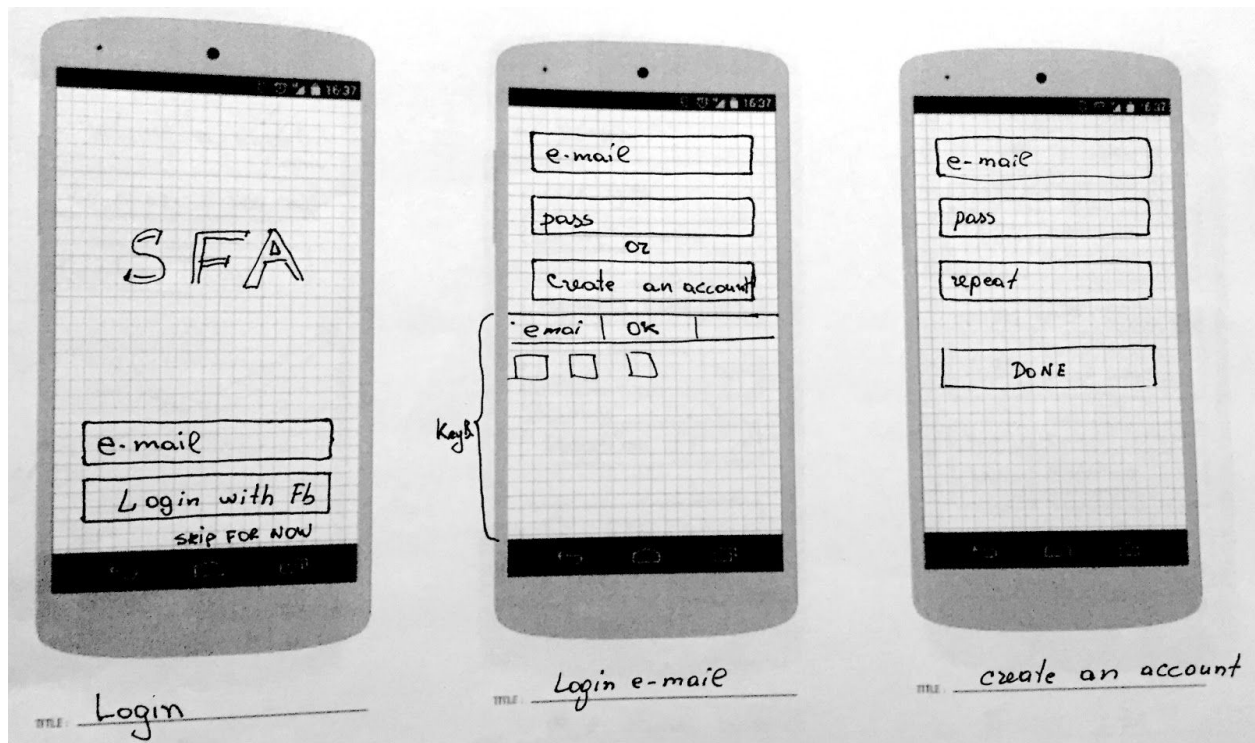 16:37
SFA
e-mail
Login with Fb
SKIP FOR NOW
TITLE: Login
16:37
e-mail
pass
or
Create an account
emai | OK |
KeyB.
TITLE: Login e-mail
16:37
e-mail
pass
repeat
DONE
TITLE: create an account